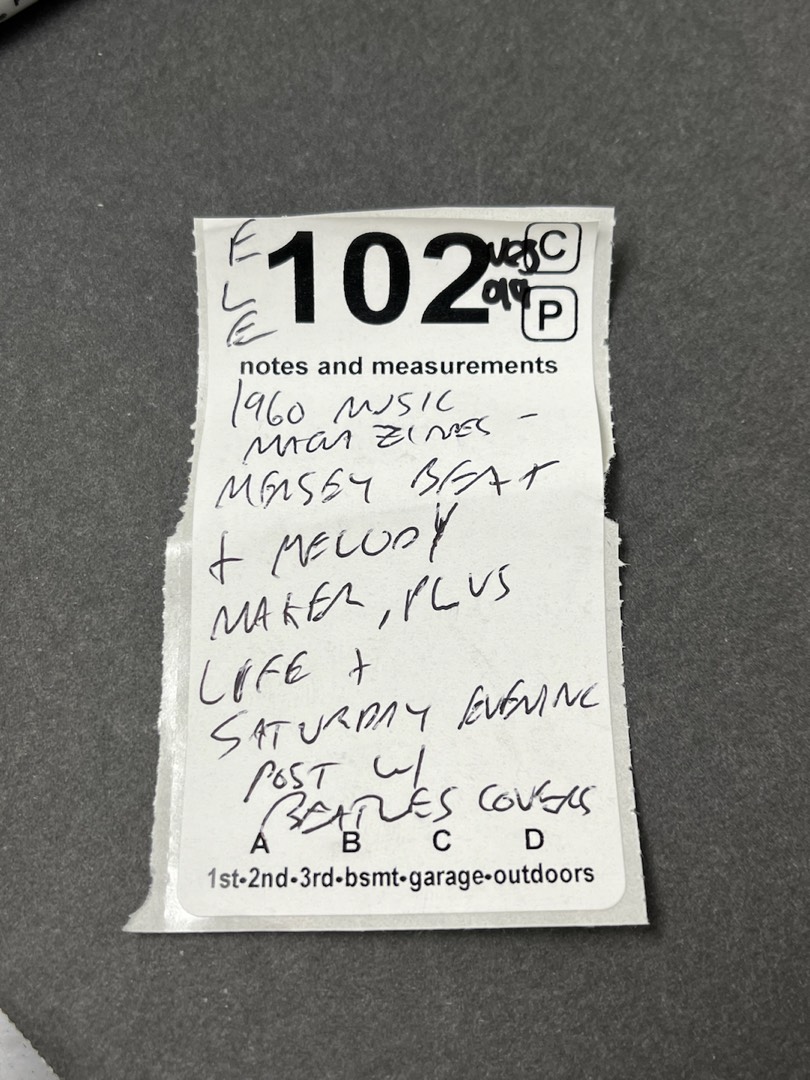 ELE
102
C
P
notes and measurements
1960 MUSIC
MAGAZINES -
MERSEY BEAT
+ MELODY
MAKER, PLUS
LIFE +
SATURDAY EVENING
POST W/
BEATLES COVERS
A B C D
1st•2nd•3rd•bsmt•garage•outdoors